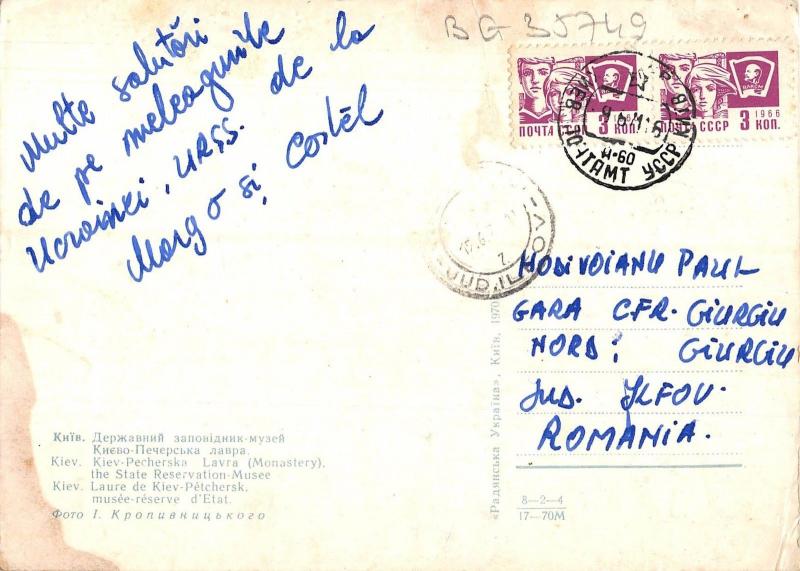 BG 35749
Multe salutări
de pe meleagurile
Ucrainei, URSS. de la
Margo și Costel
ПОЧТА СССР 3 КОП.
1966
ВЛКСМ
ПОЧТА СССР 3 КОП.
КИЕВ ПОЧТАМТ УССР
И-60
JUD. ILFOV
HODIVOIANU PAUL
GARA CFR. GIURGIU
NORD; GIURGIU
JUD. ILFOV.
ROMANIA.
«Радянська Україна», Київ, 1970
Київ. Державний заповідник-музей
Києво-Печерська лавра.
Kiev. Kiev-Pecherska Lavra (Monastery),
the State Reservation-Musee
Kiev. Laure de Kiev-Pétchersk,
musée-réserve d'Etat.
Фото І. Кропивницького
8—2—4
17—70М